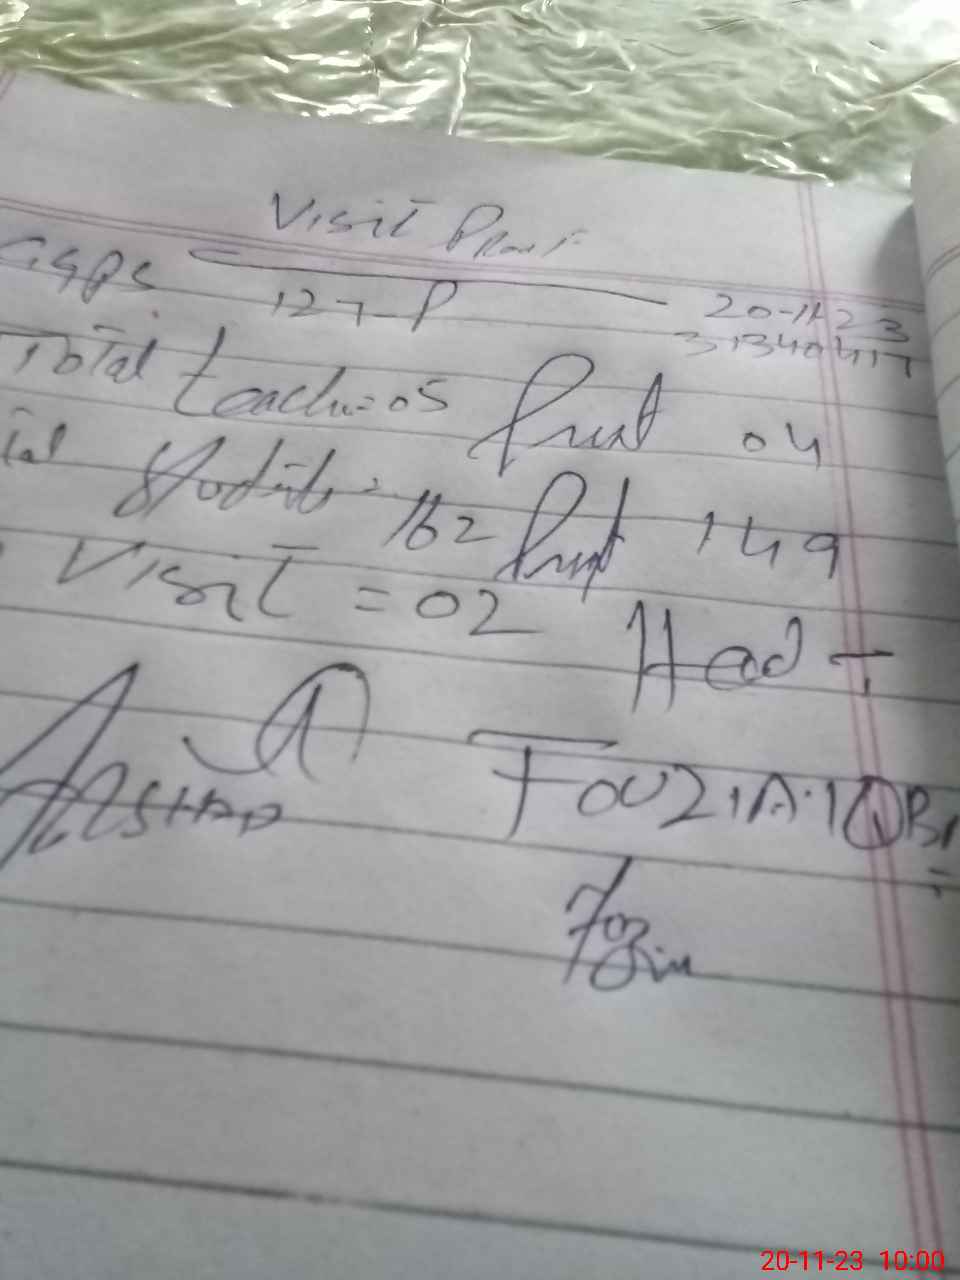 Visit Proof
GGPS 127-P 20-11-23
31340417
Total teach=05 Prest 04
Students = 162 Prest 149
Visit = 02 Head -
ARSHAD FOUZIA.IQB
Fozia
20-11-23 10:00